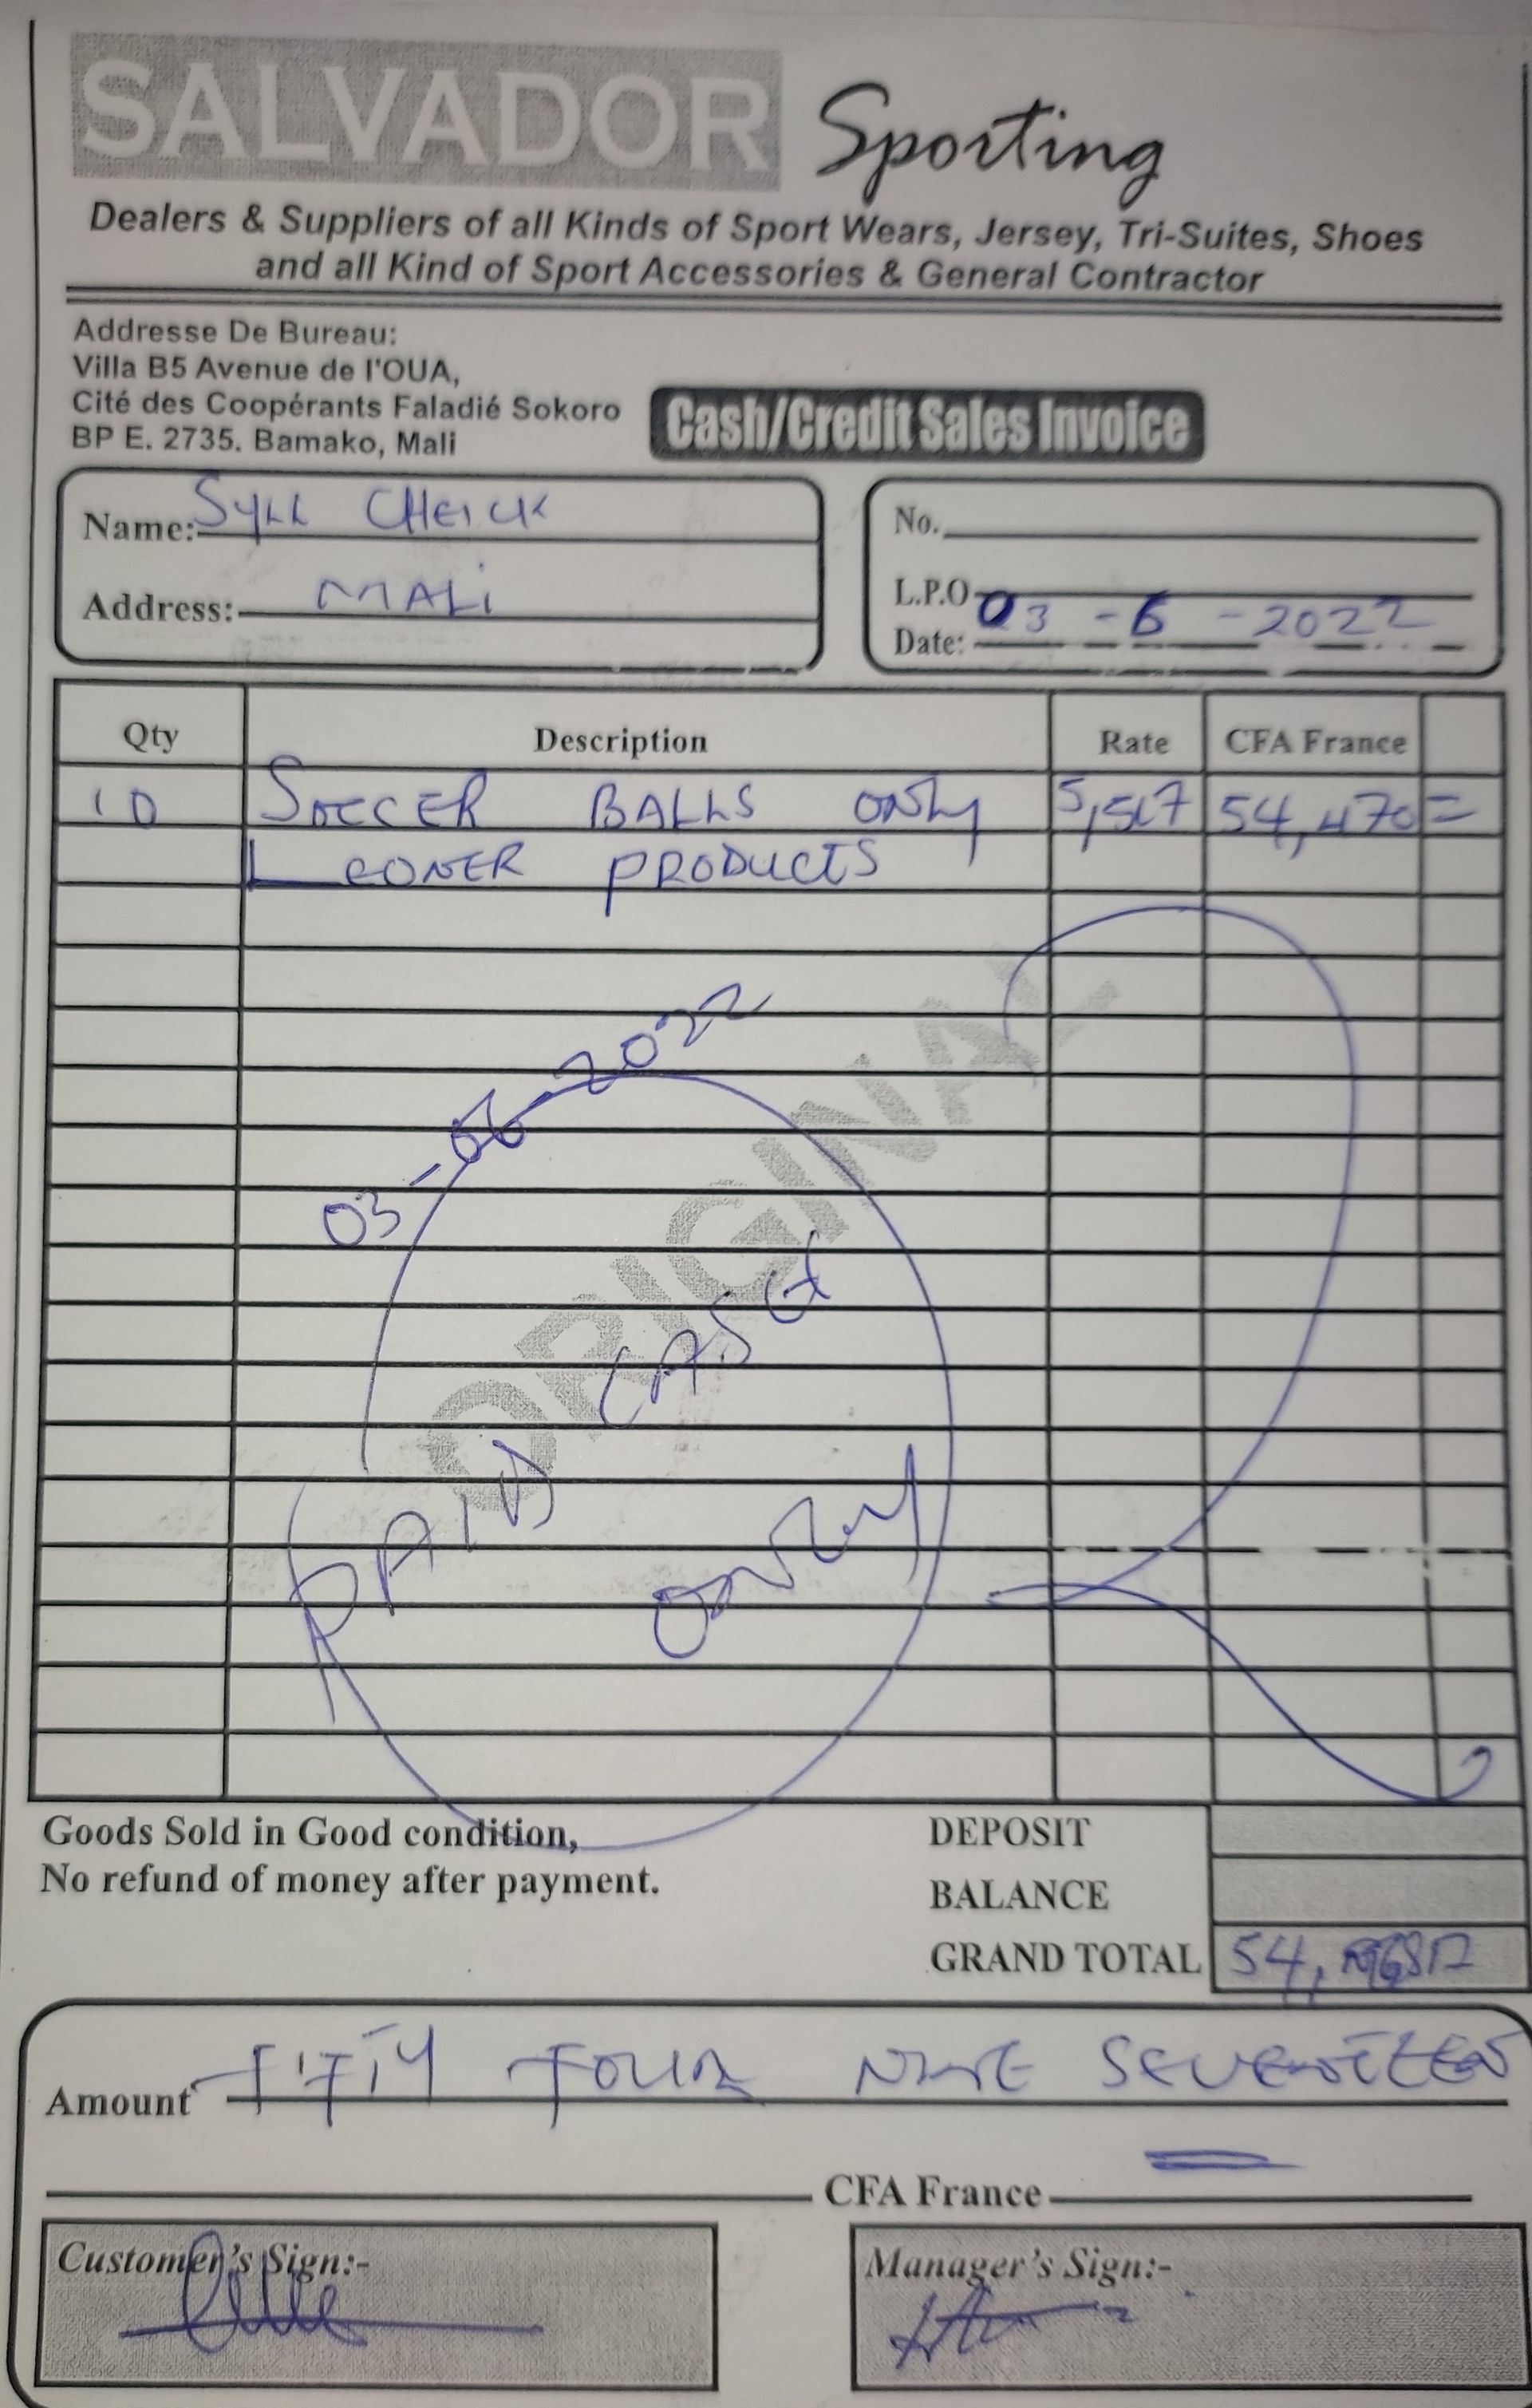 SALVADOR Sporting
Dealers & Suppliers of all Kinds of Sport Wears, Jersey, Tri-Suites, Shoes
and all Kind of Sport Accessories & General Contractor
Addresse De Bureau:
Villa B5 Avenue de l'OUA,
Cité des Coopérants Faladié Sokoro
BP E. 2735. Bamako, Mali
Cash/Credit Sales Invoice
Name: SYLL CHEICK
Address: MALi
No.
L.P.O
Date: 03 - 6 - 2022
Qty Description Rate CFA France
10 SOCCER BALLS ONLY 54,470=
PRODUCTS
03-06-2022
ORIGINAL
PAID CASH
ONLY
Goods Sold in Good condition,
No refund of money after payment.
DEPOSIT
BALANCE
GRAND TOTAL 54,
Amount FIFTY FOUR NINE SEVENTEEN
CFA France
Customer's Sign:-
Manager's Sign:-